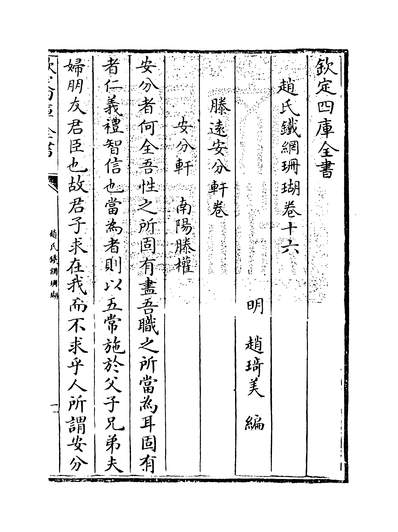 欽定四庫全書
趙氏鐵網珊瑚卷十六
明　趙琦美　編
滕遠安分軒卷
安分軒　南陽滕權
安分者何全吾性之所固有盡吾職之所當為耳固有
者仁義禮智信也當為者則以五常施於父子兄弟夫
婦朋友君臣也故君子求在我而不求乎人所謂安分
趙氏鐵網珊瑚
一